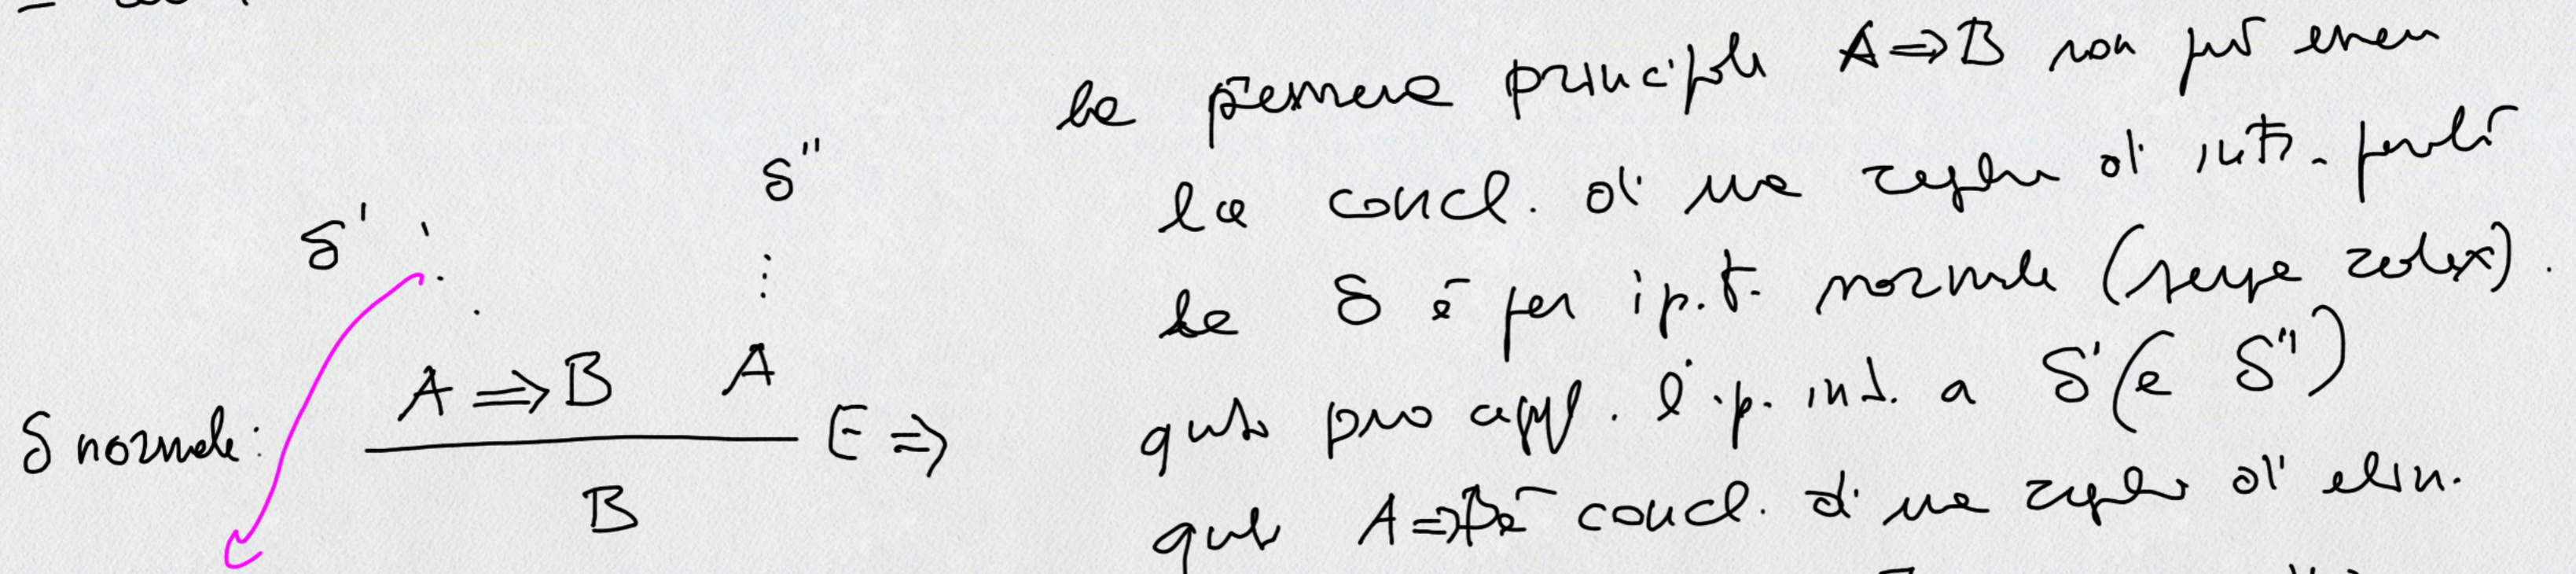 δ' δ''
A ⇒ B A
δ normale: E ⇒
B
la premessa principale A ⇒ B non può essere
la concl. di una regola di intr. perché
la δ è per ipt. normale (senza redex).
qui posso appl. l'ip. ind. a δ' (e δ'')
A ⇒ B è concl. di una regola di elim.